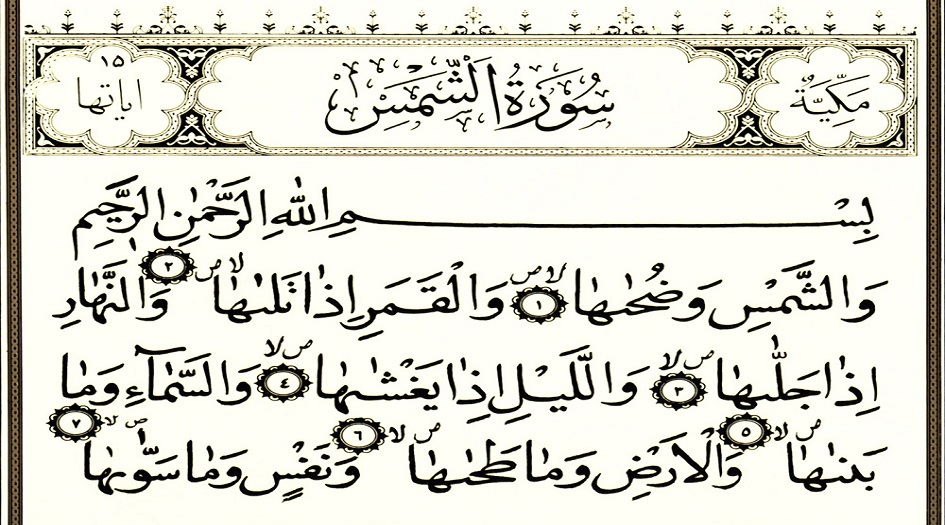 مَكِّيَّةٌ سُورَةُ الشَّمْسِ ١٥ اياتها
بِسْمِ اللّٰهِ الرَّحْمٰنِ الرَّحٖيمِ
وَالشَّمْسِ وَضُحٰيهَا ۙۖ ﴿١﴾ وَالْقَمَرِ اِذَا تَلٰيهَا ۙۖ ﴿٢﴾ وَالنَّهَارِ
اِذَا جَلّٰيهَا ۙۖ ﴿٣﴾ وَالَّيْلِ اِذَا يَغْشٰيهَا ۙۖ ﴿٤﴾ وَالسَّمَٓاءِ وَمَا
بَنٰيهَا ۙۖ ﴿٥﴾ وَالْاَرْضِ وَمَا طَحٰيهَا ۙۖ ﴿٦﴾ وَنَفْسٍ وَمَا سَوّٰيهَا ۙۖ ﴿٧﴾